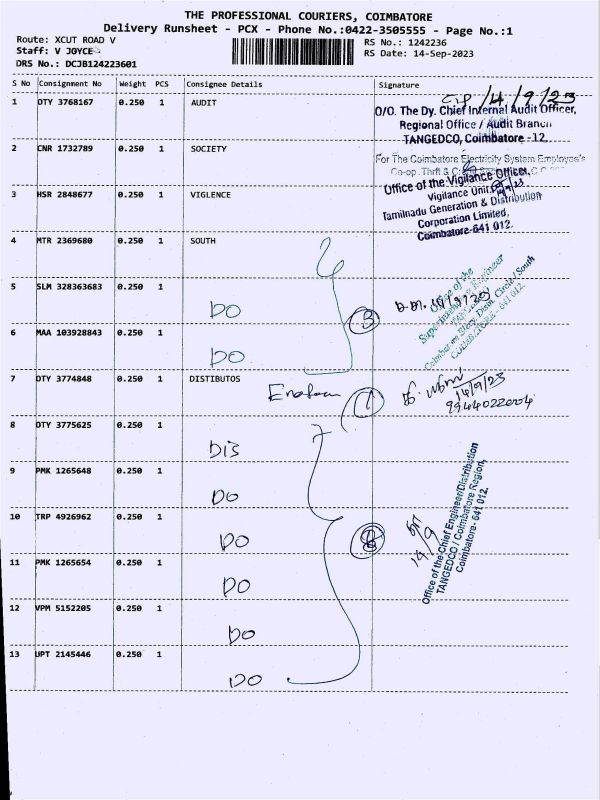 THE PROFESSIONAL COURIERS, COIMBATORE
Delivery Runsheet - PCX - Phone No.:0422-3505555 - Page No.:1
Route: XCUT ROAD V
RS No.: 1242236
Staff: V JOYCE
RS Date: 14-Sep-2023
DRS No.: DCJB124223601
S No Consignment No Weight PCS Consignee Details Signature
1 OTY 3768167 0.250 1 AUDIT
14/9/23
O/O. The Dy. Chief Internal Audit Officer,
Regional Office / Audit Branch
TANGEDCO, Coimbatore -12.
2 CNR 1732789 0.250 1 SOCIETY
For The Coimbatore Electricity System Employee's
Co-op. Thrift &
Office of the Vigilance Officer,
3 HSR 2848677 0.250 1 VIGLENCE
Vigilance Unit,
Tamilnadu Generation & Distribution
Corporation Limited,
Coimbatore-641 012.
4 MTR 2369680 0.250 1 SOUTH
5 SLM 328363683 0.250 1
DO
3
Office of the
Superintending Engineer
Coimbatore Elecy. Distn. Circle / South
COIMBATORE - 641 012.
6 MAA 103928843 0.250 1
DO
7 OTY 3774848 0.250 1 DISTIBUTOS
1
14/9/23
9944022004
8 OTY 3775625 0.250 1
DIS
9 PMK 1265648 0.250 1
DO
10 TRP 4926962 0.250 1
DO
14/9
Office of the Chief Engineer/Distribution
TANGEDCO / Coimbatore Region,
Coimbatore- 641 012.
11 PMK 1265654 0.250 1
DO
12 VPM 5152205 0.250 1
DO
13 UPT 2145446 0.250 1
DO